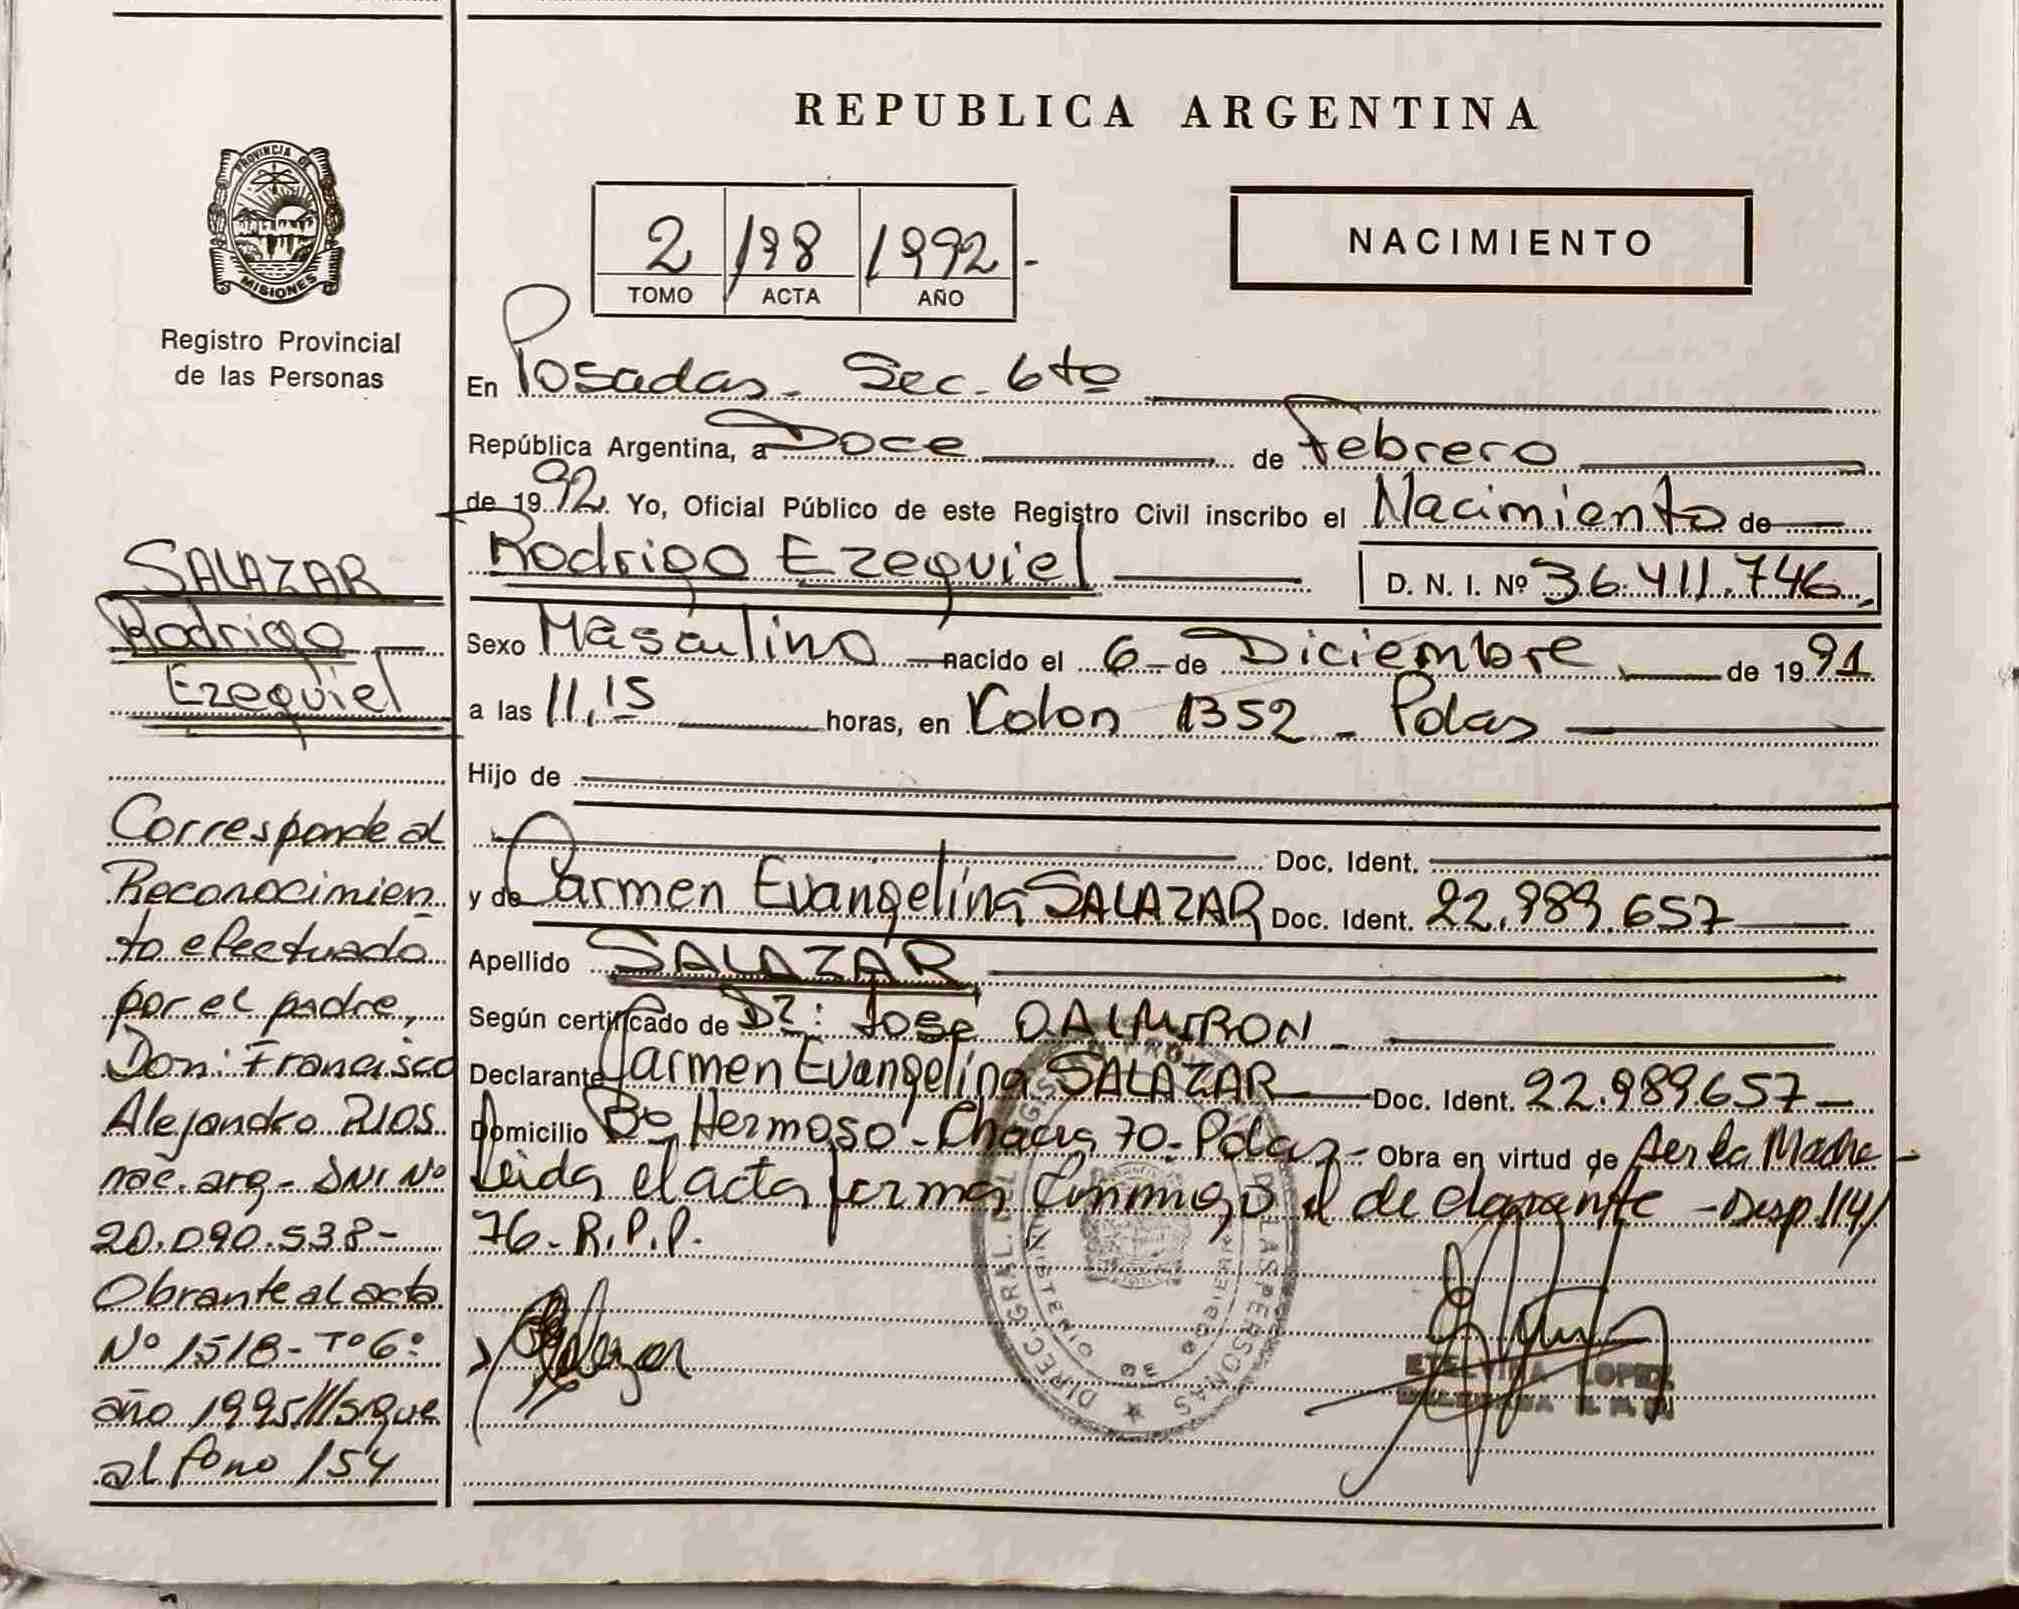 REPUBLICA ARGENTINA
PROVINCIA DE
MISIONES
Registro Provincial
de las Personas
2 198 1992.-
TOMO ACTA AÑO
NACIMIENTO
En Posadas - Sec. 6to
República Argentina, a Doce de Febrero
de 1992. Yo, Oficial Público de este Registro Civil inscribo el Nacimiento de
Rodrigo Ezequiel D. N. I. Nº 36.411.746.
Sexo Masculino nacido el 6 de Diciembre de 1991
a las 11,15 horas, en Colon 1352 - Pdas
Hijo de
Doc. Ident.
y de Carmen Evangelina SALAZAR Doc. Ident. 22.989.657
Apellido SALAZAR
Según certificado de Dr: José O. ALMIRON
Declarante Carmen Evangelina SALAZAR Doc. Ident. 22.989657-
Domicilio Bº Hermoso - Chacra 70 - Pdas - Obra en virtud de ser la Madre -
Leida el acta firma conmigo el declarante - Disp. 114/
76 - R.P.P.
SALAZAR
Rodrigo
Ezequiel
Corresponde al
Reconocimien
to efectuado
por el padre,
Don: Francisco
Alejandro RIOS
nac. arg - DNI Nº
20.090.538-
Obrante al acta
Nº 1518 - Tº 6º
año 1995///sigue
al fono 154
Salazar
DIREC. GRAL. DEL REGISTRO DE LAS PERSONAS
MINISTERIO DE GOBIERNO
LOPEZ